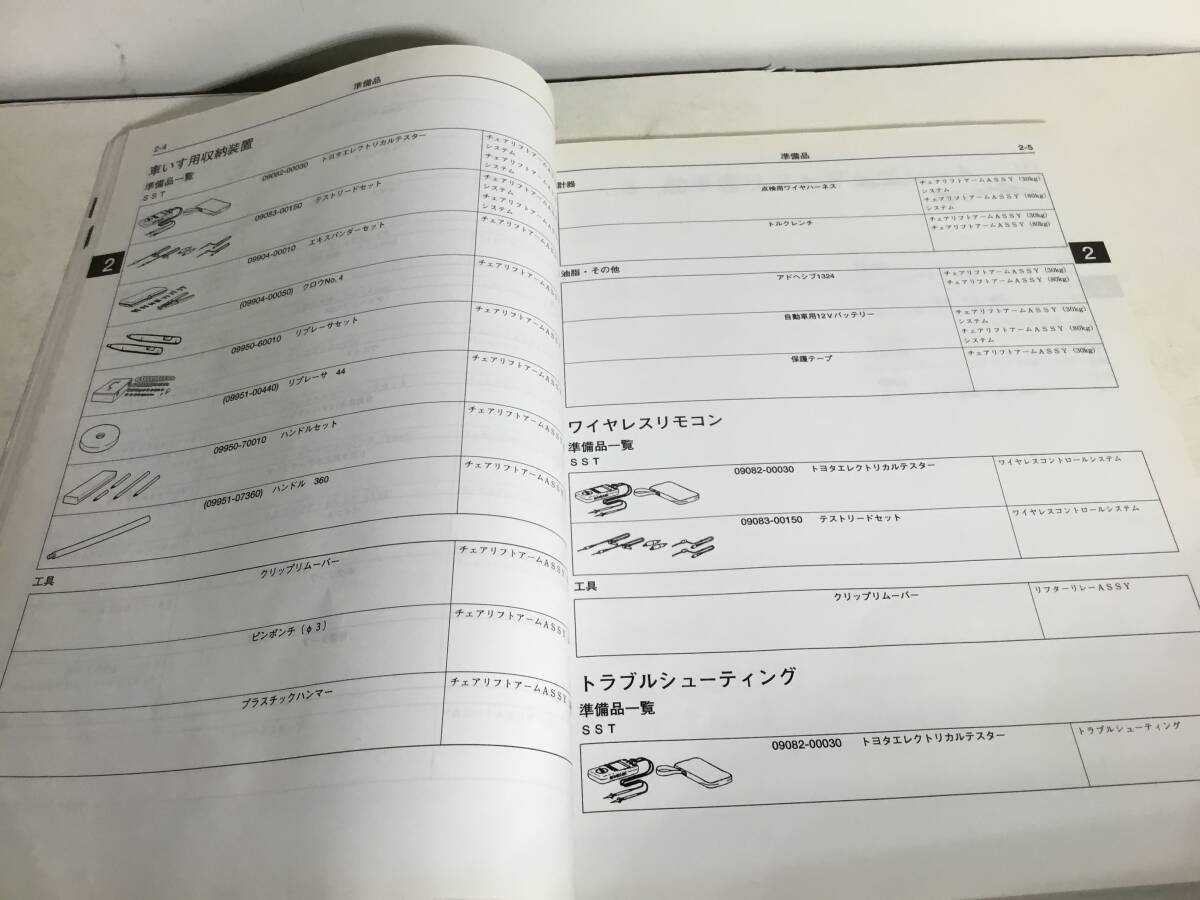 2-4
準備品
車いす用収納装置
準備品一覧
SST
09082-00030 トヨタエレクトリカルテスター
チェアリフトアーム
システム
チェアリフトアーム
システム
09083-00150 テストリードセット
チェアリフトアーム
システム
チェアリフトアーム
システム
09904-00010 エキスパンダーセット
チェアリフトアーム
(09904-00050) クロウNo. 4
チェアリフトアームA
09950-60010 リプレーサセット
チェアリフトアームAS
(09951-00440) リプレーサ 44
チェアリフトアームAS
09950-70010 ハンドルセット
チェアリフトアームASS
(09951-07360) ハンドル 360
チェアリフトアームASS
工具
クリップリムーバー
チェアリフトアームASS
ピンポンチ(φ3)
チェアリフトアームASS
プラスチックハンマー
チェアリフトアームASSY
2
準備品
2-5
計器
点検用ワイヤハーネス
チェアリフトアームASSY (30kg)
システム
チェアリフトアームASSY (80kg)
システム
トルクレンチ
チェアリフトアームASSY (30kg)
チェアリフトアームASSY (80kg)
油脂・その他
アドヘシブ1324
チェアリフトアームASSY (30kg)
チェアリフトアームASSY (80kg)
自動車用12Vバッテリー
チェアリフトアームASSY (30kg)
システム
チェアリフトアームASSY (80kg)
システム
保護テープ
チェアリフトアームASSY (30kg)
ワイヤレスリモコン
準備品一覧
SST
09082-00030 トヨタエレクトリカルテスター
ワイヤレスコントロールシステム
09083-00150 テストリードセット
ワイヤレスコントロールシステム
工具
クリップリムーバー
リフターリレーASSY
トラブルシューティング
準備品一覧
SST
09082-00030 トヨタエレクトリカルテスター
トラブルシューティング
2